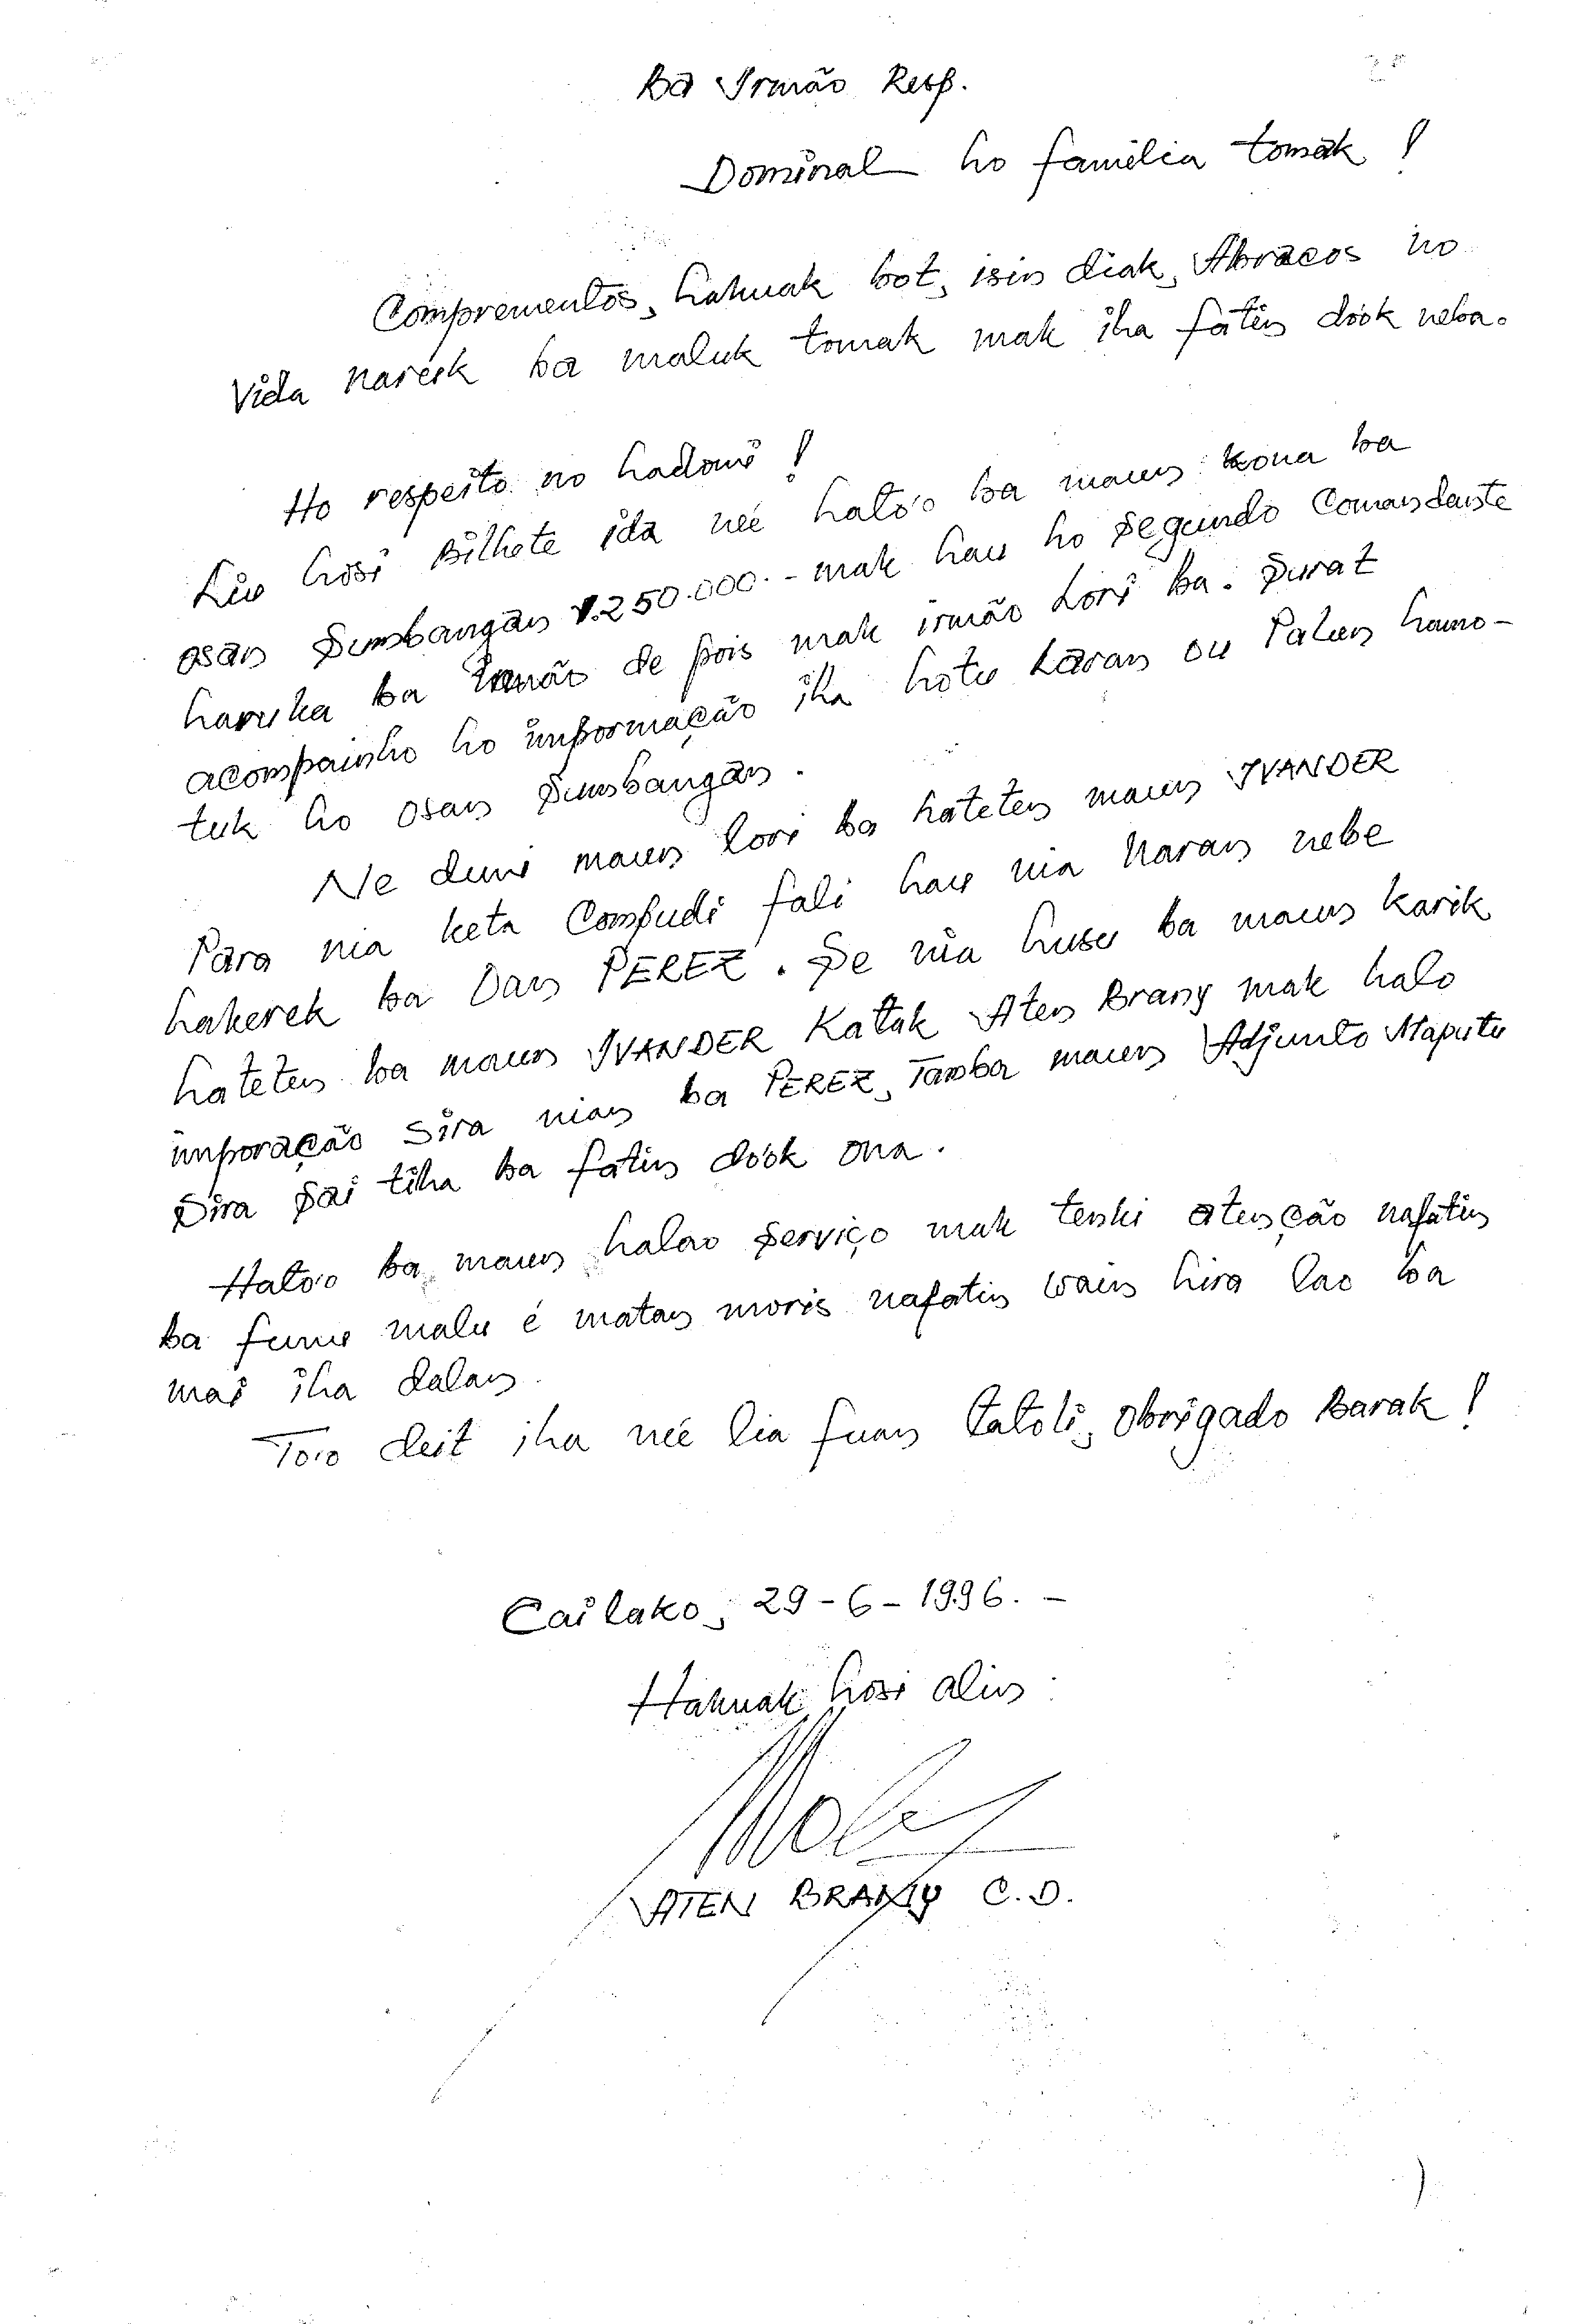 Ba Irmão Resp.
Dominal ho familia tomak !
Comprementos, hakuak bot, isin diak, Abracos no
Vida naresk ba maluk tomak mak iha fatin dóok neba.
Ho respeito no hadomi !
Liu hosi Bilhete ida neé hato'o ba maun kona ba
osan Sumbangan 1.250.000.- mak hau ho Segundo Comandante
haruka ba Irmão de pois mak irmão Lori ba. Surat
acompainho ho informação iha hotu Laran ou Palun hamo-
tuk ho osan Sumbangan.
Ne duni maun lori ba hateten maun IVANDER
Para nia keta Confudi fali hau nia Naran nebe
hakerek ba Dan PEREZ. Se nia husu ba maun karik
hateten ba maun IVANDER Katak Aten Brany mak halo
inforação sira nian ba PEREZ, Tamba maun Adjunto Maputu
Sira Sai tiha ba fatin dóok ona.
Hato'o ba maun halao Serviço mak tenki atenção nafatin
ba funu malu é matan moris nafatin wain hira lao ba
mai iha dalan.
To'o deit iha neé lia fuan tatoli, Obrigado Barak !
Cailako, 29-6-1996.-
Hakuak hosi alin :
ATEN BRANY C.D.